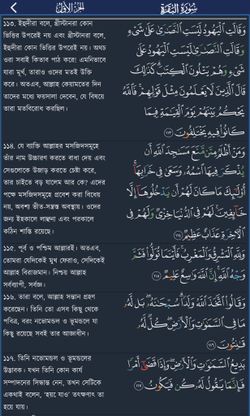 الجزء الأول
سورة البقرة
১১৩. ইহুদীরা বলে, খ্রীস্টানরা কোন
ভিত্তির উপরেই নয় এবং খ্রীস্টানরা বলে,
ইহুদীরা কোন ভিত্তির উপরেই নয়। অথচ
ওরা সবাই কিতাব পাঠ করে! এমনিভাবে
যারা মূর্খ, তারাও ওদের মতই উক্তি
করে। অতএব, আল্লাহ কেয়ামতের দিন
তাদের মধ্যে ফয়সালা দেবেন, যে বিষয়ে
তারা মতবিরোধ করছিল।
وَقَالَتِ ٱلۡيَهُودُ لَيۡسَتِ ٱلنَّصَٰرَىٰ عَلَىٰ شَيۡءٖ
وَقَالَتِ ٱلنَّصَٰرَىٰ لَيۡسَتِ ٱلۡيَهُودُ عَلَىٰ
شَيۡءٖ وَهُمۡ يَتۡلُونَ ٱلۡكِتَٰبَۗ كَذَٰلِكَ
قَالَ ٱلَّذِينَ لَا يَعۡلَمُونَ مِثۡلَ قَوۡلِهِمۡۚ فَٱللَّهُ
يَحۡكُمُ بَيۡنَهُمۡ يَوۡمَ ٱلۡقِيَٰمَةِ فِيمَا
كَانُواْ فِيهِ يَخۡتَلِفُونَ ١١٣
১১৪. যে ব্যাক্তি আল্লাহর মসজিদসমূহে
তাঁর নাম উচ্চারণ করতে বাধা দেয় এবং
সেগুলোকে উজাড় করতে চেষ্টা করে,
তার চাইতে বড় যালেম আর কে? এদের
পক্ষে মসজিদসমূহে প্রবেশ করা বিধেয়
নয়, অবশ্য ভীত-সন্ত্রস্ত অবস্থায়। ওদের
জন্য ইহকালে লাঞ্ছনা এবং পরকালে
কঠিন শাস্তি রয়েছে।
وَمَنۡ أَظۡلَمُ مِمَّن مَّنَعَ مَسَٰجِدَ ٱللَّهِ أَن
يُذۡكَرَ فِيهَا ٱسۡمُهُۥ وَسَعَىٰ فِي خَرَابِهَآۚ
أُوْلَٰٓئِكَ مَا كَانَ لَهُمۡ أَن يَدۡخُلُوهَآ إِلَّا
خَآئِفِينَۚ لَهُمۡ فِي ٱلدُّنۡيَا خِزۡيٞ وَلَهُمۡ فِي
ٱلۡأٓخِرَةِ عَذَابٌ عَظِيمٞ ١١٤
১১৫. পূর্ব ও পশ্চিম আল্লারই। অতএব,
তোমরা যেদিকেই মুখ ফেরাও, সেদিকেই
আল্লাহ বিরাজমান। নিশ্চয় আল্লাহ
সর্বব্যাপী, সর্বজ্ঞ।
وَلِلَّهِ ٱلۡمَشۡرِقُ وَٱلۡمَغۡرِبُۚ فَأَيۡنَمَا تُوَلُّواْ فَثَمَّ
وَجۡهُ ٱللَّهِۚ إِنَّ ٱللَّهَ وَٰسِعٌ عَلِيمٞ ١١٥
১১৬. তারা বলে, আল্লাহ সন্তান গ্রহণ
করেছেন। তিনি তো এসব কিছু থেকে
পবিত্র, বরং নভোমন্ডল ও ভূমন্ডলে যা
কিছু রয়েছে সবই তার আজ্ঞাধীন।
وَقَالُواْ ٱتَّخَذَ ٱللَّهُ وَلَدٗاۗ سُبۡحَٰنَهُۥۖ بَل لَّهُۥ
مَا فِي ٱلسَّمَٰوَٰتِ وَٱلۡأَرۡضِۖ كُلّٞ لَّهُۥ
قَٰنِتُونَ ١١٦
১১৭. তিনি নভোমন্ডল ও ভূমন্ডলের
উদ্ভাবক। যখন তিনি কোন কার্য
সম্পাদনের সিন্ধান্ত নেন, তখন সেটিকে
একথাই বলেন, ‘হয়ে যাও’ তৎক্ষণাৎ তা
হয়ে যায়।
بَدِيعُ ٱلسَّمَٰوَٰتِ وَٱلۡأَرۡضِۖ وَإِذَا قَضَىٰٓ أَمۡرٗا
فَإِنَّمَا يَقُولُ لَهُۥ كُن فَيَكُونُ ١١٧